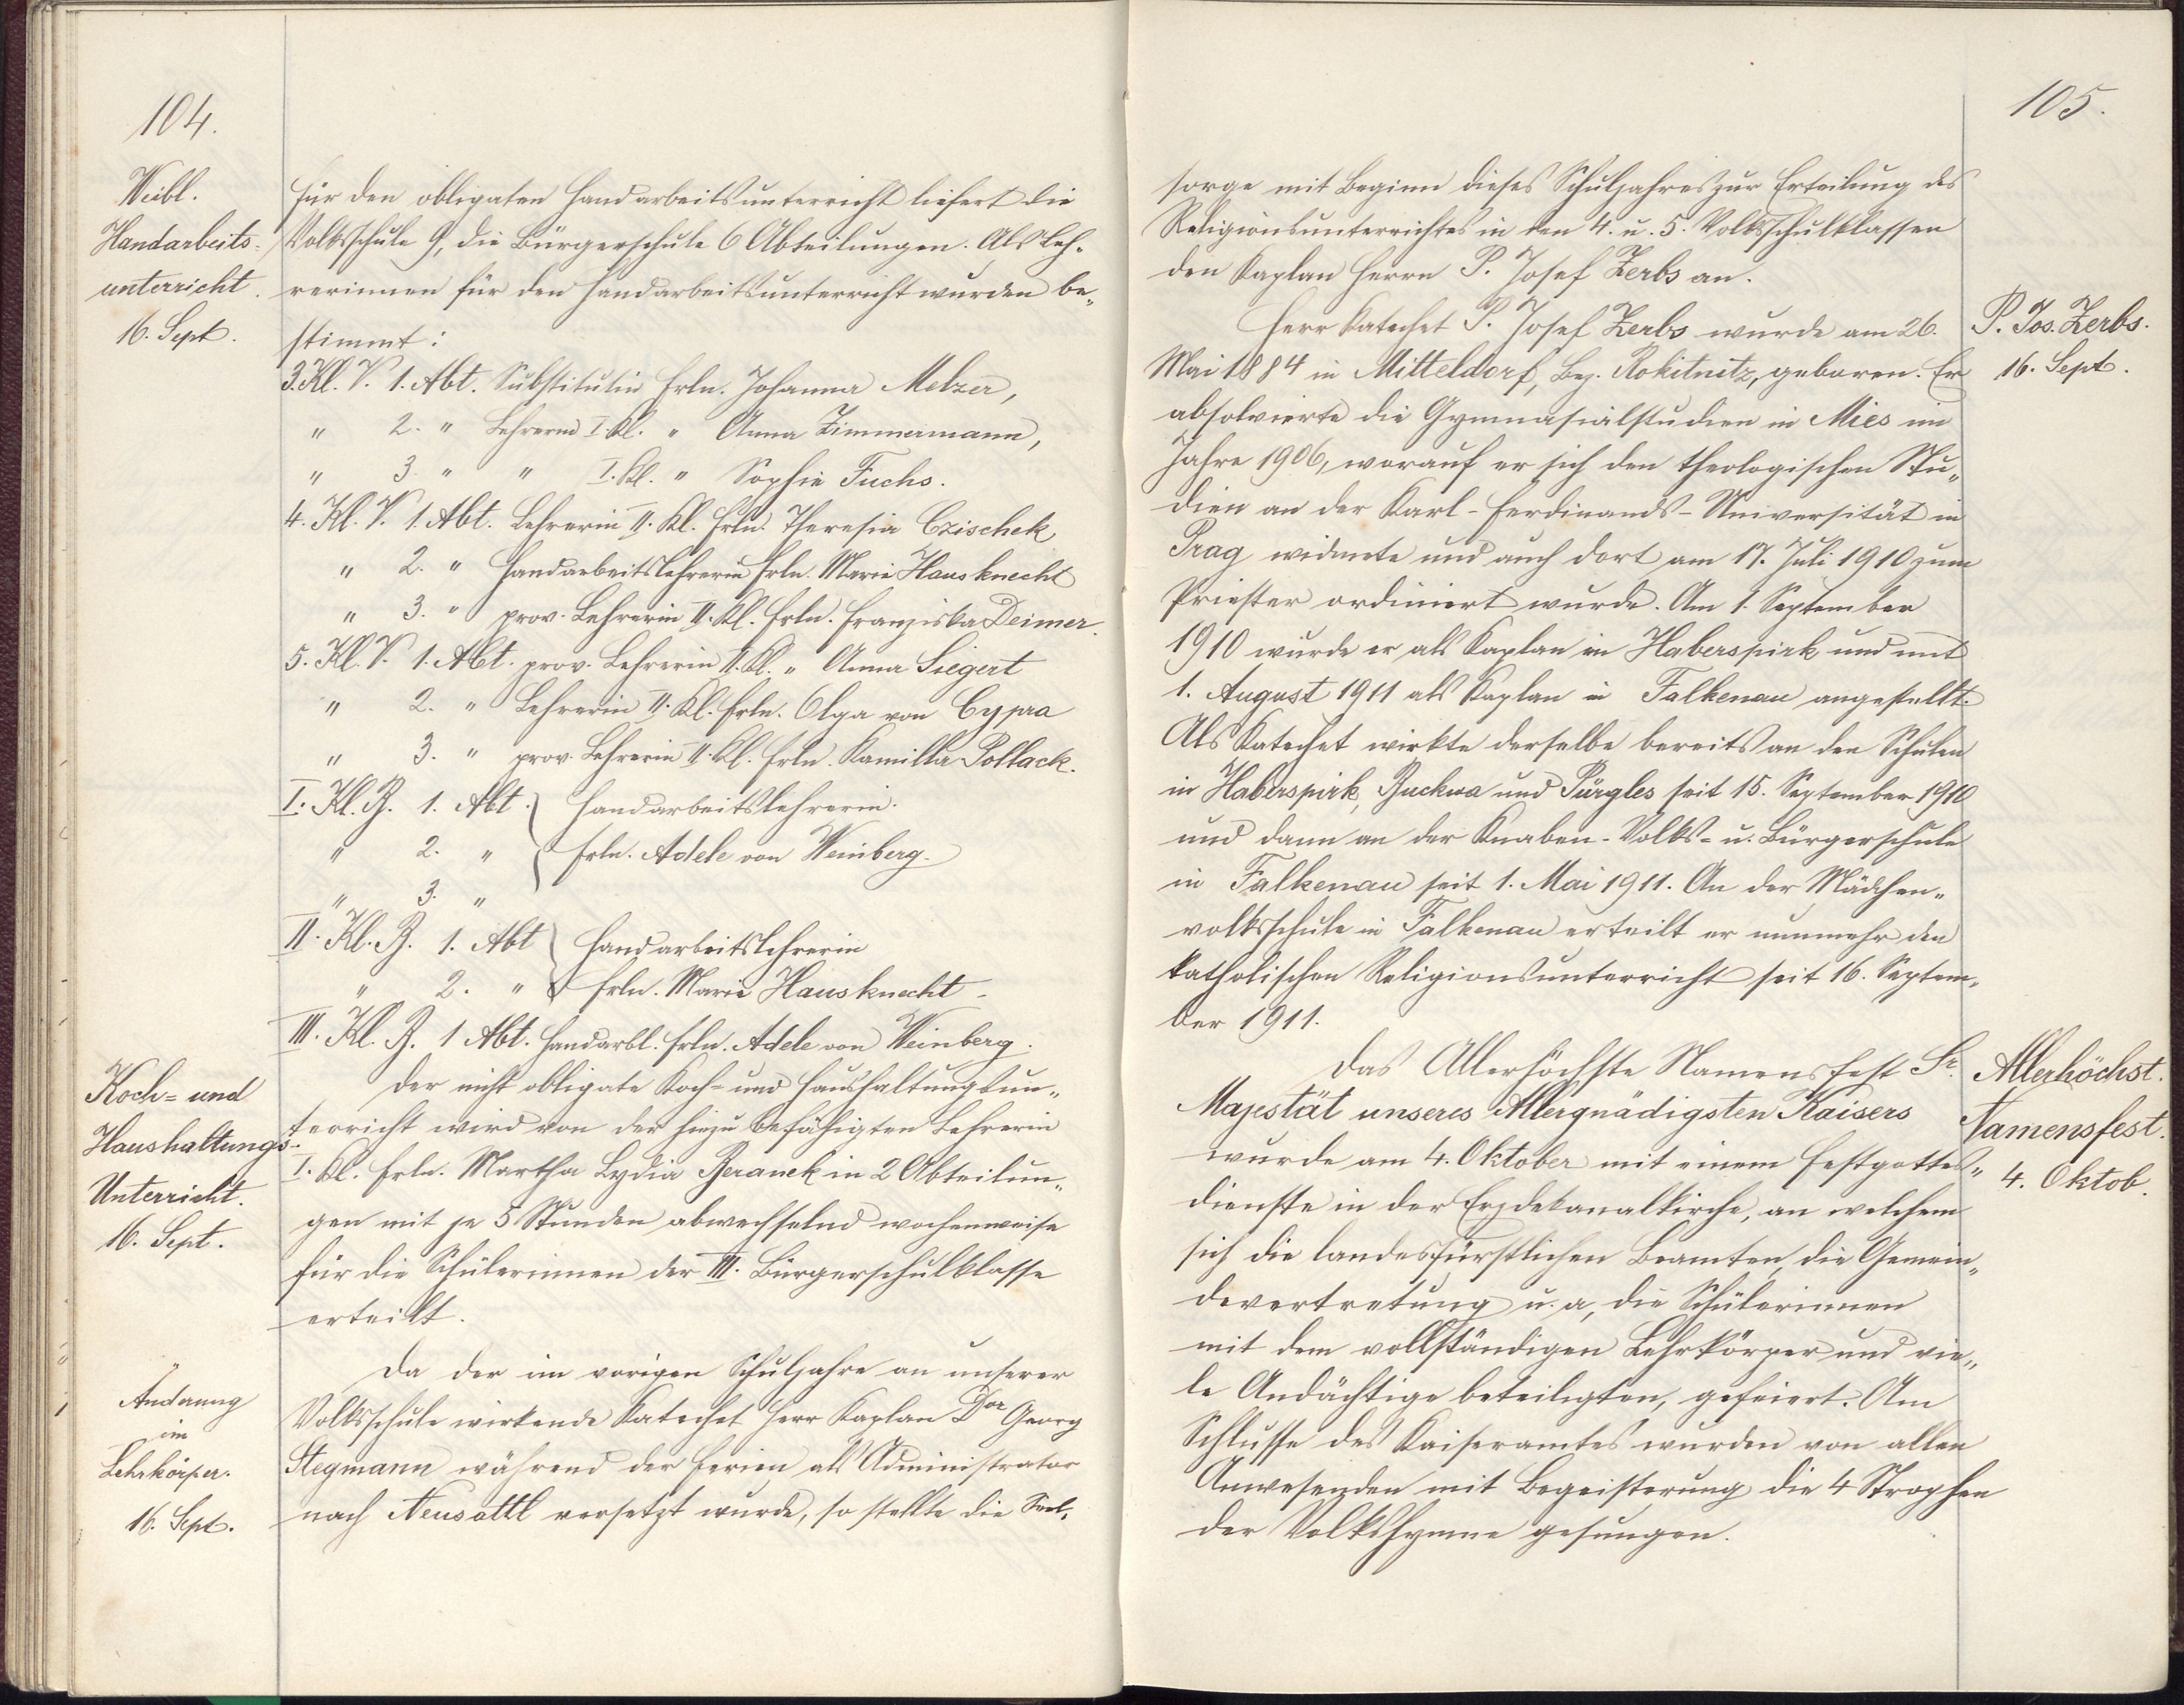 104.
Weibl.
Handarbeits-
unterricht.
16. Sept.
Für den obligaten Handarbeitsunterricht liefert die
Volksschule 9, die Bürgerschule 6 Abteilungen. Als Leh-
rerinnen für den Handarbeitsunterricht wurden be-
stimmt:
3. Kl. V. 1. Abt. Substitutin Frln. Johanna Melzer,
" 2. " Lehrerin I. Kl. " Anna Zimmermann,
" 3. " " I. Kl. " Sophie Fuchs.
4. Kl. V. 1. Abt. Lehrerin II. Kl. Frln. Theresia Czischek
" 2. " Handarbeitslehrerin Frln. Marie Hausknecht
" 3. " prov. Lehrerin II. Kl. Frln. Franziska Deimer.
5. Kl. V. 1. Abt. prov. Lehrerin II. Kl. " Anna Siegert
" 2. " Lehrerin II. Kl. Frln. Olga von Cypra
" 3. " prov. Lehrerin II. Kl. Frln. Kamilla Pollack.
I. Kl. B. 1. Abt. Handarbeitslehrerin
" 2. " Frln. Adele von Weinberg.
" 3. "
II. Kl. B. 1. Abt Handarbeitslehrerin
" 2. " Frln. Marie Hausknecht
III. Kl. B. 1 Abt. Handarbl. Frln. Adele von Weinberg.
Koch- und
Haushaltungs-
Unterricht.
16. Sept.
Der nicht obligate Koch- und Haushaltungsun-
terricht wird von der hiezu befähigten Lehrerin
I. Kl. Frln. Martha Lydia Beranek in 2 Abteilun-
gen mit je 5 Stunden abwechselnd wochenweise
für die Schülerinnen der III. Bürgerschulklasse
erteilt.
Änderung
im
Lehrkörper.
16. Sept.
Da der im vorigen Schuljahre an unserer
Volksschule wirkende Katechet Herr Kaplan Dor Georg
Stegmann während der Ferien als Administrator
nach Neusattl versetzt wurde, so stellte die Seel-
105.
sorge mit Beginn dieses Schuljahres zur Erteilung des
Religionsunterrichtes in den 4. u. 5. Volksschulklassen
den Kaplan Herrn P. Josef Zerbs an.
P. Jos. Zerbs.
16. Sept.
Herr Katechet P. Josef Zerbs wurde am 26.
Mai 1884 in Mitteldorf, Bez. Rokitnitz, geboren. Er
absolvierte die Gymnasialstudien in Mies im
Jahre 1906, worauf er sich den theologischen Stu-
dien an der Karl-Ferdinands-Universität in
Prag widmete und auch dort am 17. Juli 1910 zum
Priester ordiniert wurde. Am 1. September
1910 wurde er als Kaplan in Haberspirk und mit
1. August 1911 als Kaplan in Falkenau angestellt.
Als Katechet wirkte derselbe bereits an den Schulen
in Haberspirk, Buckwa und Pürgles seit 15. September 1910
und dann an der Knaben-Volks- u. Bürgerschule
in Falkenau seit 1. Mai 1911. An der Mädchen-
volksschule in Falkenau erteilt er nunmehr den
katholischen Religionsunterricht seit 16. Septem-
ber 1911.
Allerhöchst.
Namensfest.
4. Oktob.
Das Allerhöchste Namensfest Sr.
Majestät unseres Allergnädigsten Kaisers
wurde am 4. Oktober mit einem Festgottes-
dienste in der Erzdekanalkirche, an welchem
sich die landesfürstlichen Beamten, die Gemein-
devertretung u. a, die Schülerinnen
mit dem vollständigen Lehrkörper und vie-
le Andächtige beteiligten, gefeiert. Am
Schlusse des Kaiseramtes wurden von allen
Anwesenden mit Begeisterung die 4 Strophen
der Volkshymne gesungen.